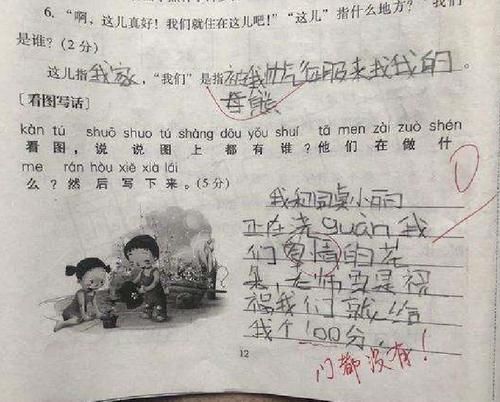 6. “啊，这儿真好！我们就住在这儿吧！”“这儿”指什么地方？“我们”
是谁？(2分)
这儿指我家，“我们”是指被我帅气征服来找我的
母熊。
[看图写话]
kàn tú shuō shuo tú shàng dōu yǒu shuí tā men zài zuò shén
看图，说说图上都有谁？他们在做什
me rán hòu xiě xià lái
么？然后写下来。(5分)
我和同桌小丽
正在浇guàn我
们爱情的花
朵，老师要是祝
福我们就给
我个100分。
门都没有！
12